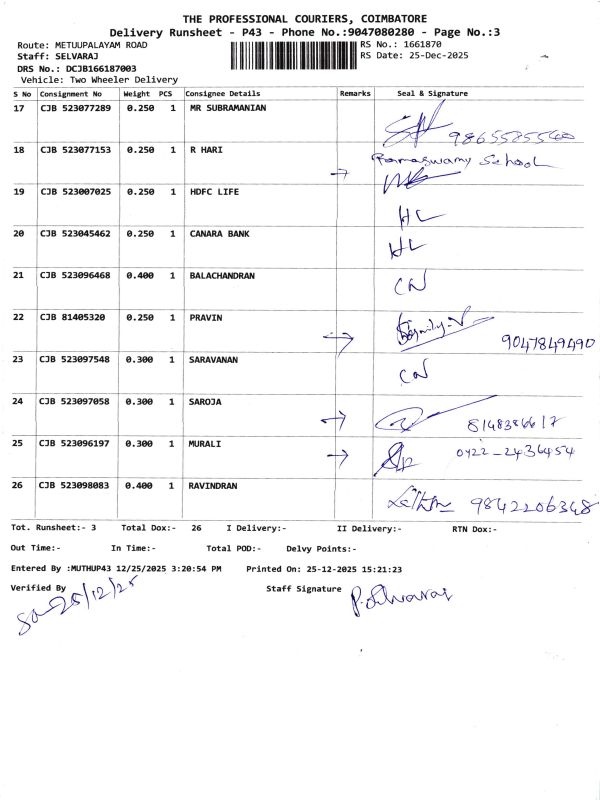 THE PROFESSIONAL COURIERS, COIMBATORE
Delivery Runsheet - P43 - Phone No.:9047080280 - Page No.:3
Route: METUUPALAYAM ROAD RS No.: 1661870
Staff: SELVARAJ RS Date: 25-Dec-2025
DRS No.: DCJB166187003
Vehicle: Two Wheeler Delivery
S No Consignment No Weight PCS Consignee Details Remarks Seal & Signature
17 CJB 523077289 0.250 1 MR SUBRAMANIAN
9865585540
18 CJB 523077153 0.250 1 R HARI Ramaswamy School
19 CJB 523007025 0.250 1 HDFC LIFE
HL
20 CJB 523045462 0.250 1 CANARA BANK
HL
21 CJB 523096468 0.400 1 BALACHANDRAN
CN
22 CJB 81405320 0.250 1 PRAVIN
→ 9047849490
23 CJB 523097548 0.300 1 SARAVANAN
CN
24 CJB 523097058 0.300 1 SAROJA
→ 8148386617
25 CJB 523096197 0.300 1 MURALI
→ 0422-2436454
26 CJB 523098083 0.400 1 RAVINDRAN
9842206348
Tot. Runsheet:- 3 Total Dox:- 26 I Delivery:- II Delivery:- RTN Dox:-
Out Time:- In Time:- Total POD:- Delvy Points:-
Entered By :MUTHUP43 12/25/2025 3:20:54 PM Printed On: 25-12-2025 15:21:23
Verified By Staff Signature
25/12/25 P. Selvaraj